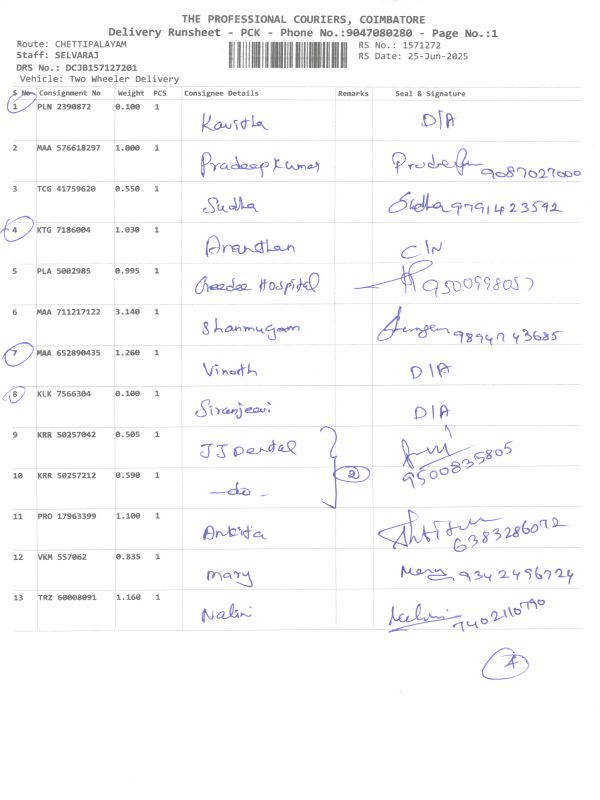 THE PROFESSIONAL COURIERS, COIMBATORE
Delivery Runsheet - PCK - Phone No.:9047080280 - Page No.:1
Route: CHETTIPALAYAM RS No.: 1571272
Staff: SELVARAJ RS Date: 25-Jun-2025
DRS No.: DCJB157127201
Vehicle: Two Wheeler Delivery
S No. Consignment No Weight PCS Consignee Details Remarks Seal & Signature
1 PLN 2390872 0.100 1 Kavitha D/A
2 MAA 576618297 1.000 1 Pradeep Kumar 9087027000
3 TCG 41759620 0.550 1 Sudha Sudha 9791423592
4 KTG 7186004 1.030 1 Ananthan C/N
5 PLA 5002985 0.995 1 Hospital 9500998057
6 MAA 711217122 3.140 1 Shanmugam 9894743685
7 MAA 652890435 1.260 1 Vinoth D/A
8 KLK 7566304 0.100 1 Siranjeevi D/A
9 KRR 50257042 0.505 1 JJ Dental
10 KRR 50257212 0.590 1 -do- 2 9500835805
11 PRO 17963399 1.100 1 Ankita 6383286072
12 VKM 557062 0.835 1 Mary Mary 9342496724
13 TRZ 60008091 1.160 1 Nalini 7402110790
4